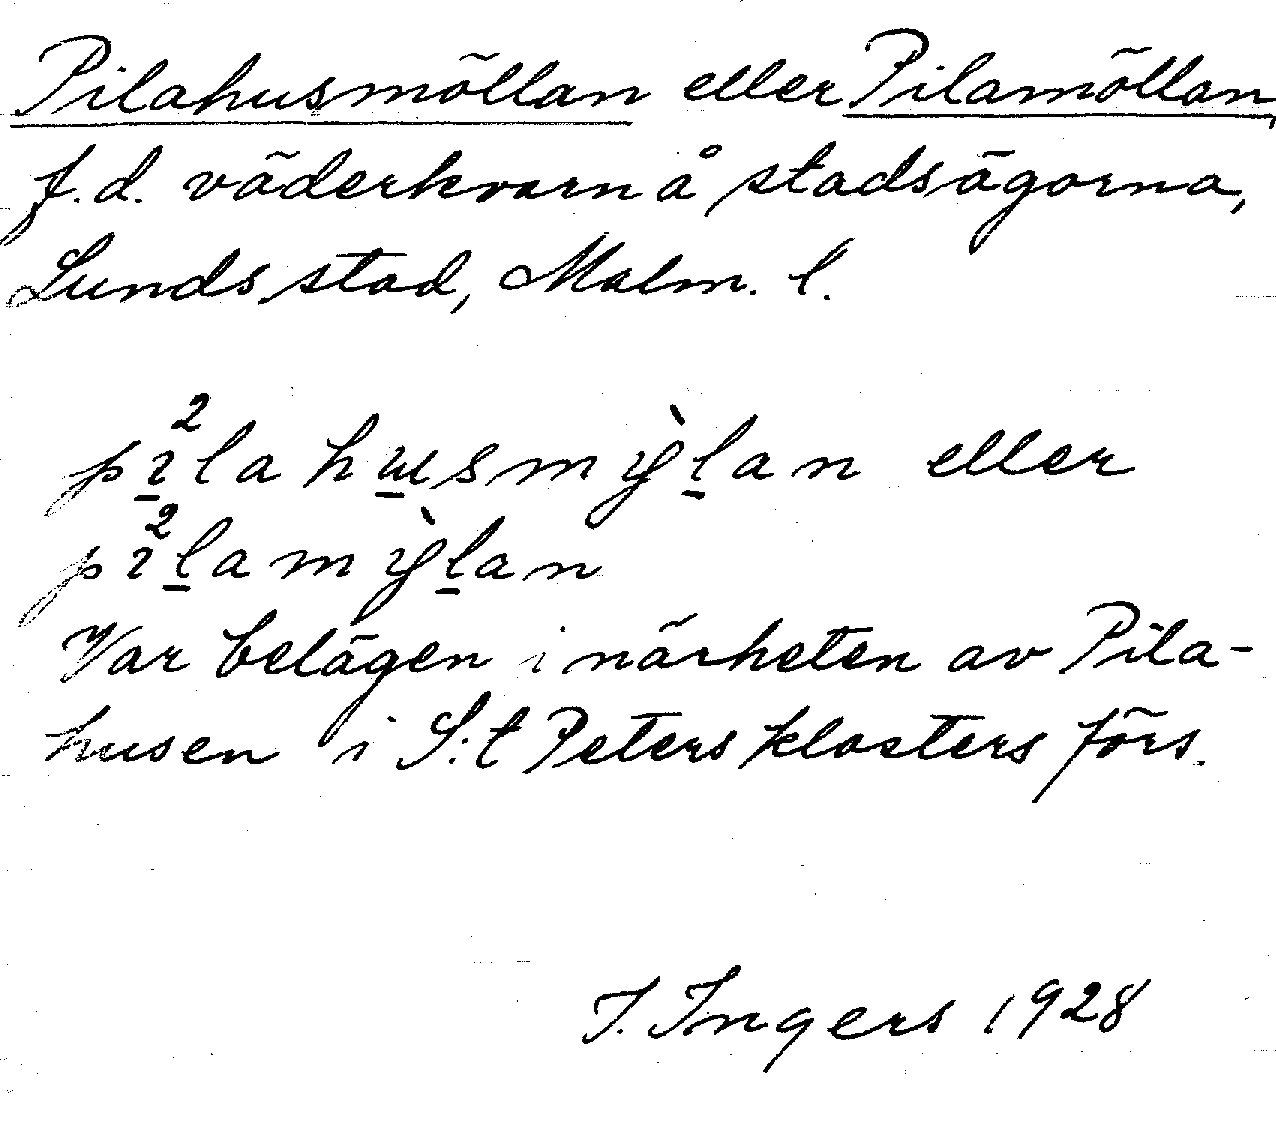 Pilahusmöllan eller Pilamöllan,
f.d. väderkvarn å stadsägorna,
Lunds stad, Malm. l.
pı̱²la hɯ̱smỳḻan eller
pı²ḻamỳḻan
Var belägen i närheten av Pila-
husen i S:t Peters klosters förs.
I. Ingers 1928